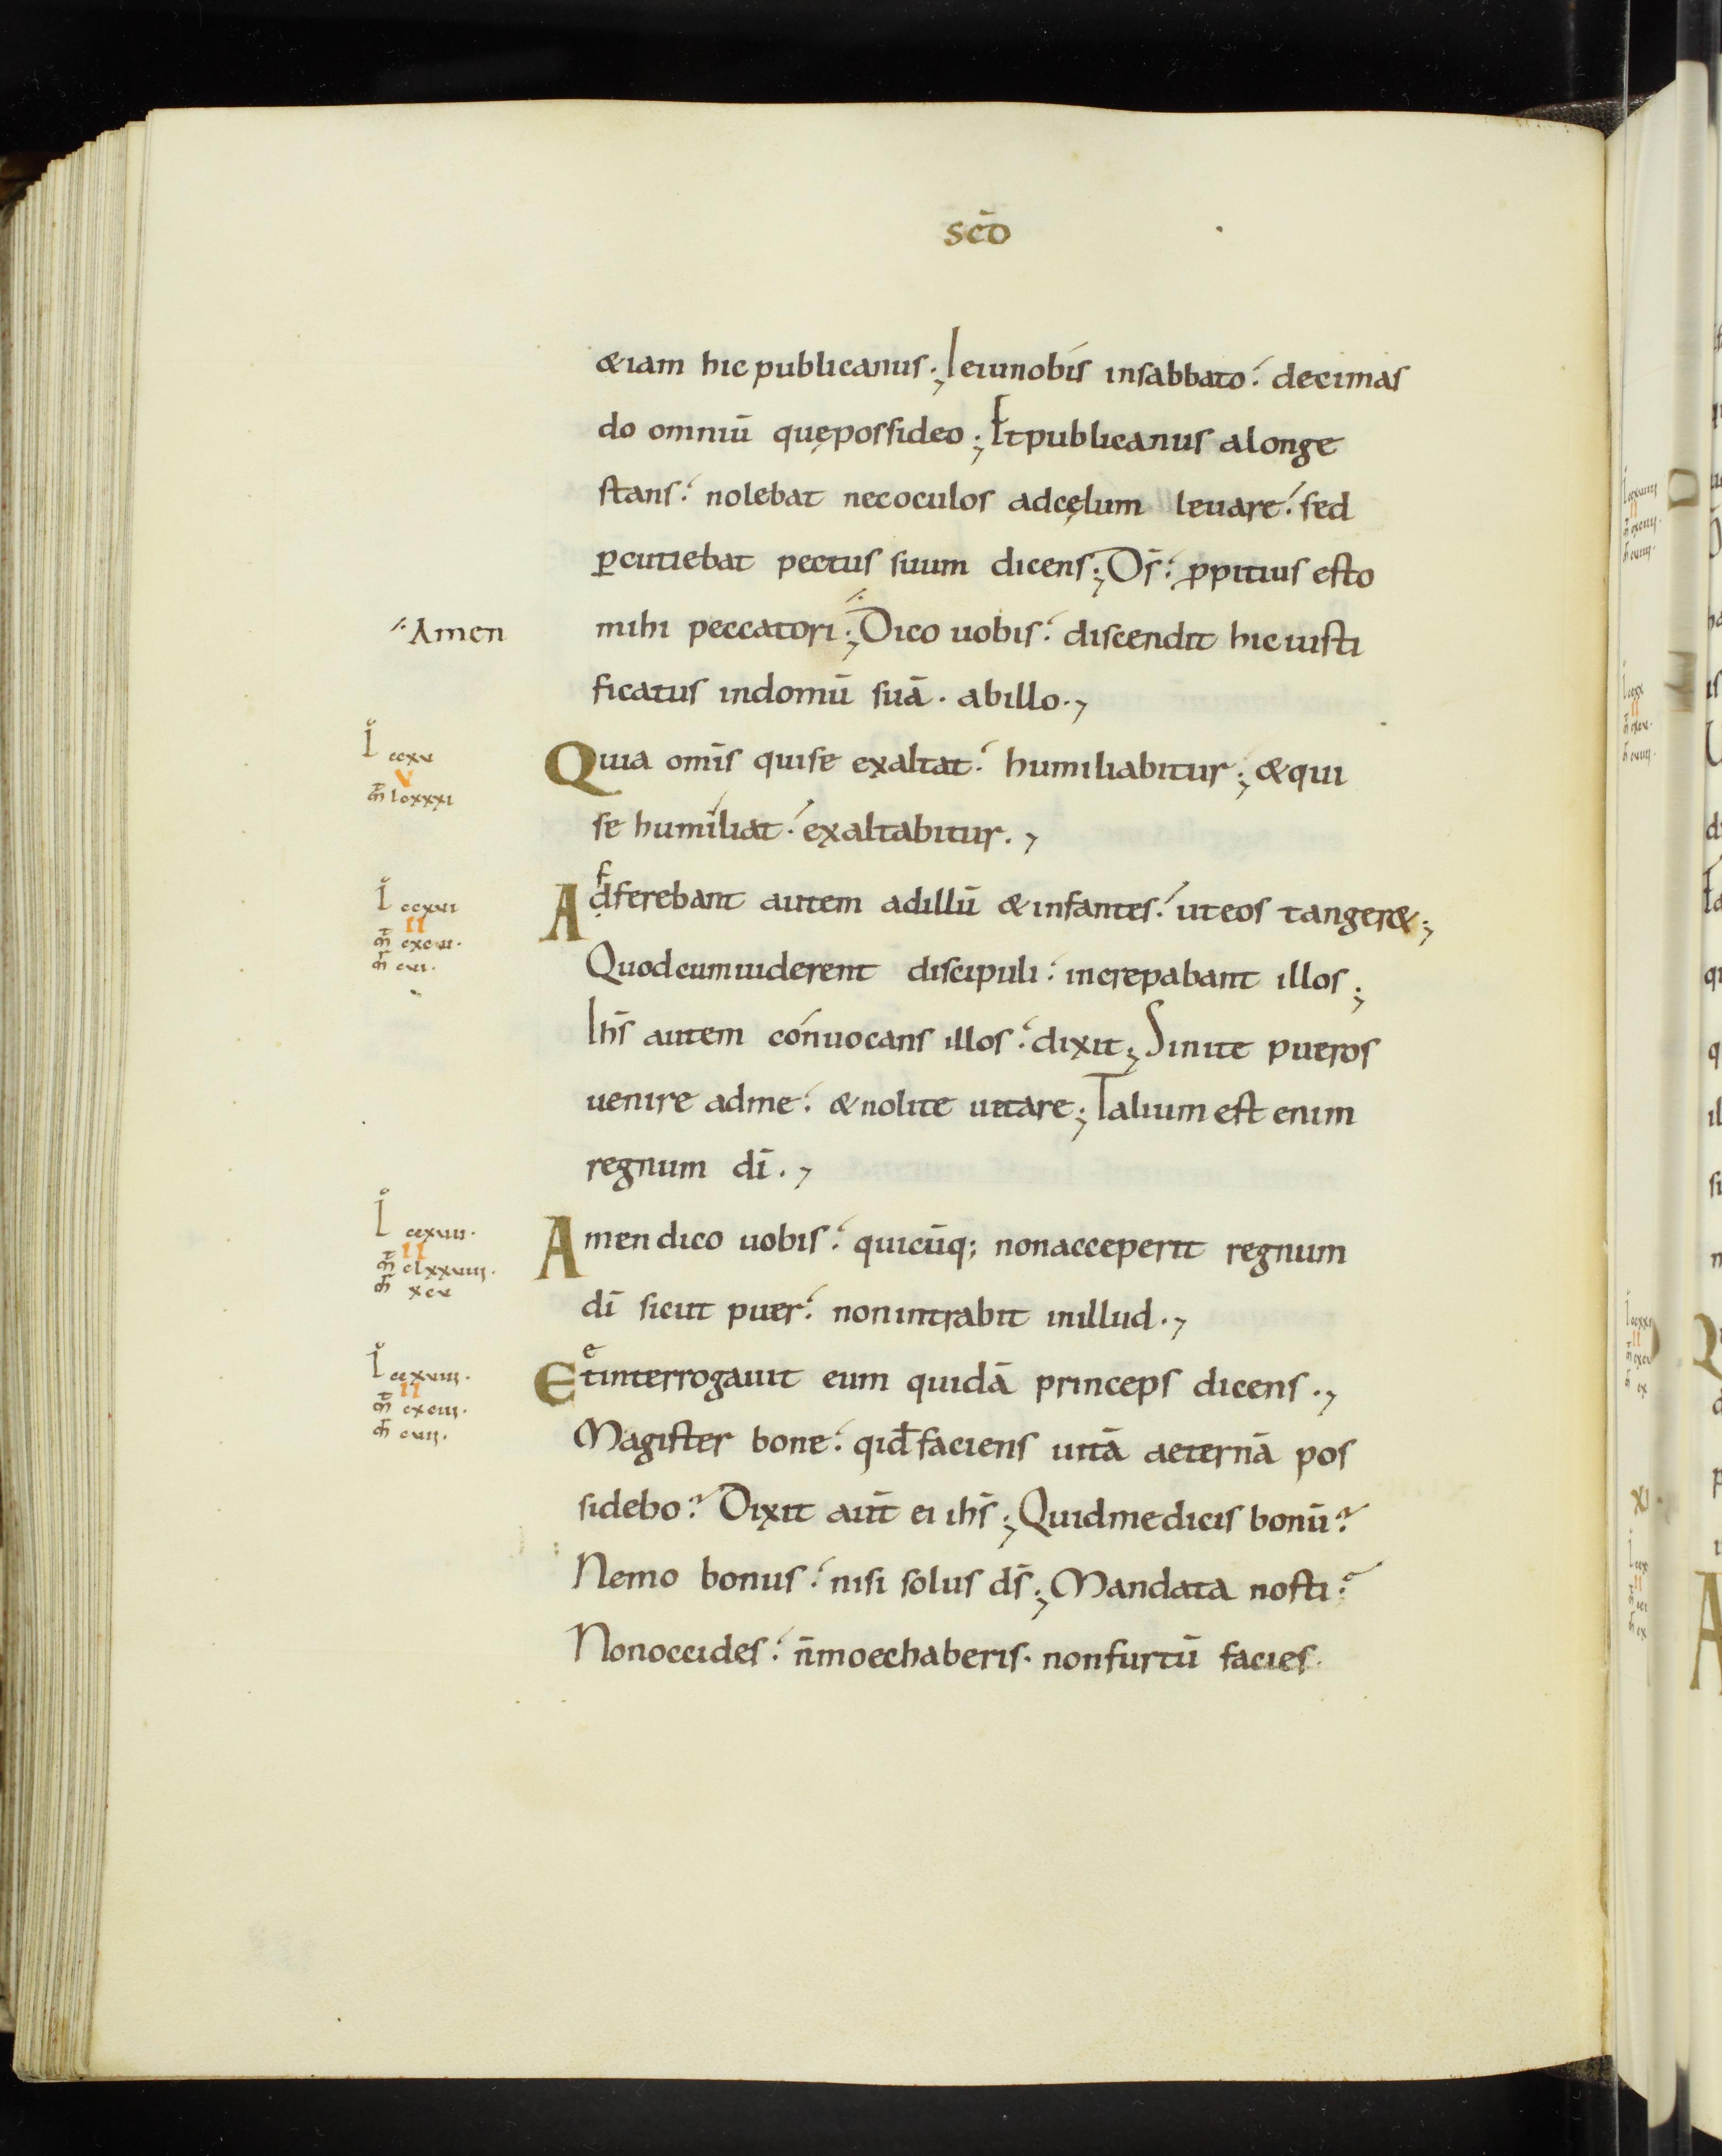 scō
&iam hic publicanus; Ieiunobis insabbato: decimas
do omniū quępossideo; Etpublicanus alonge
stans: nolebat necoculos adcęlum leuare: sed
ꝑcutiebat pectus suum dicens; Dś: ꝓpitius esto
Amen
mihi peccatori; Dico uobis: discendit hic iusti
ficatus indomū suā. abillo.,
L̊ ccxv
V
m̄ lcxxxi
Quia omīs quise exaltat: humiliabitur; &qui
se humiliat: exaltabitur.,
L̊ ccxvi
II
m̄ cxcvi.
m̄ cvi.
f
Adferebant autem adillū &infantes: uteos tanger&;
Quodcumuiderent discipuli: increpabant illos;
Ihs̄ autem conuocans illos: dixit; Sinite pueros
uenire adme: &nolite uetare; Talium est enim
regnum dī.,
L̊ ccxvii.
II
m̄ clxxviiii.
m̄ xcv
Amen dico uobis: quicūq; nonacceperit regnum
dī sicut puer: nonintrabit inillud.,
L̊ ccxviii.
II
m̄ cxciii.
m̄ cvii.
e
Etinterrogauit eum quidā princeps dicens.,
Magister bone: qid̄ faciens uitā aeternā pos
sidebo? Dixit aut̄ ei ihs̄; Quidmedicis bonū?
Nemo bonus: nisi solus ds̄; Mandata nosti?
Nonoccides: n̄moechaberis. nonfurtū facies.